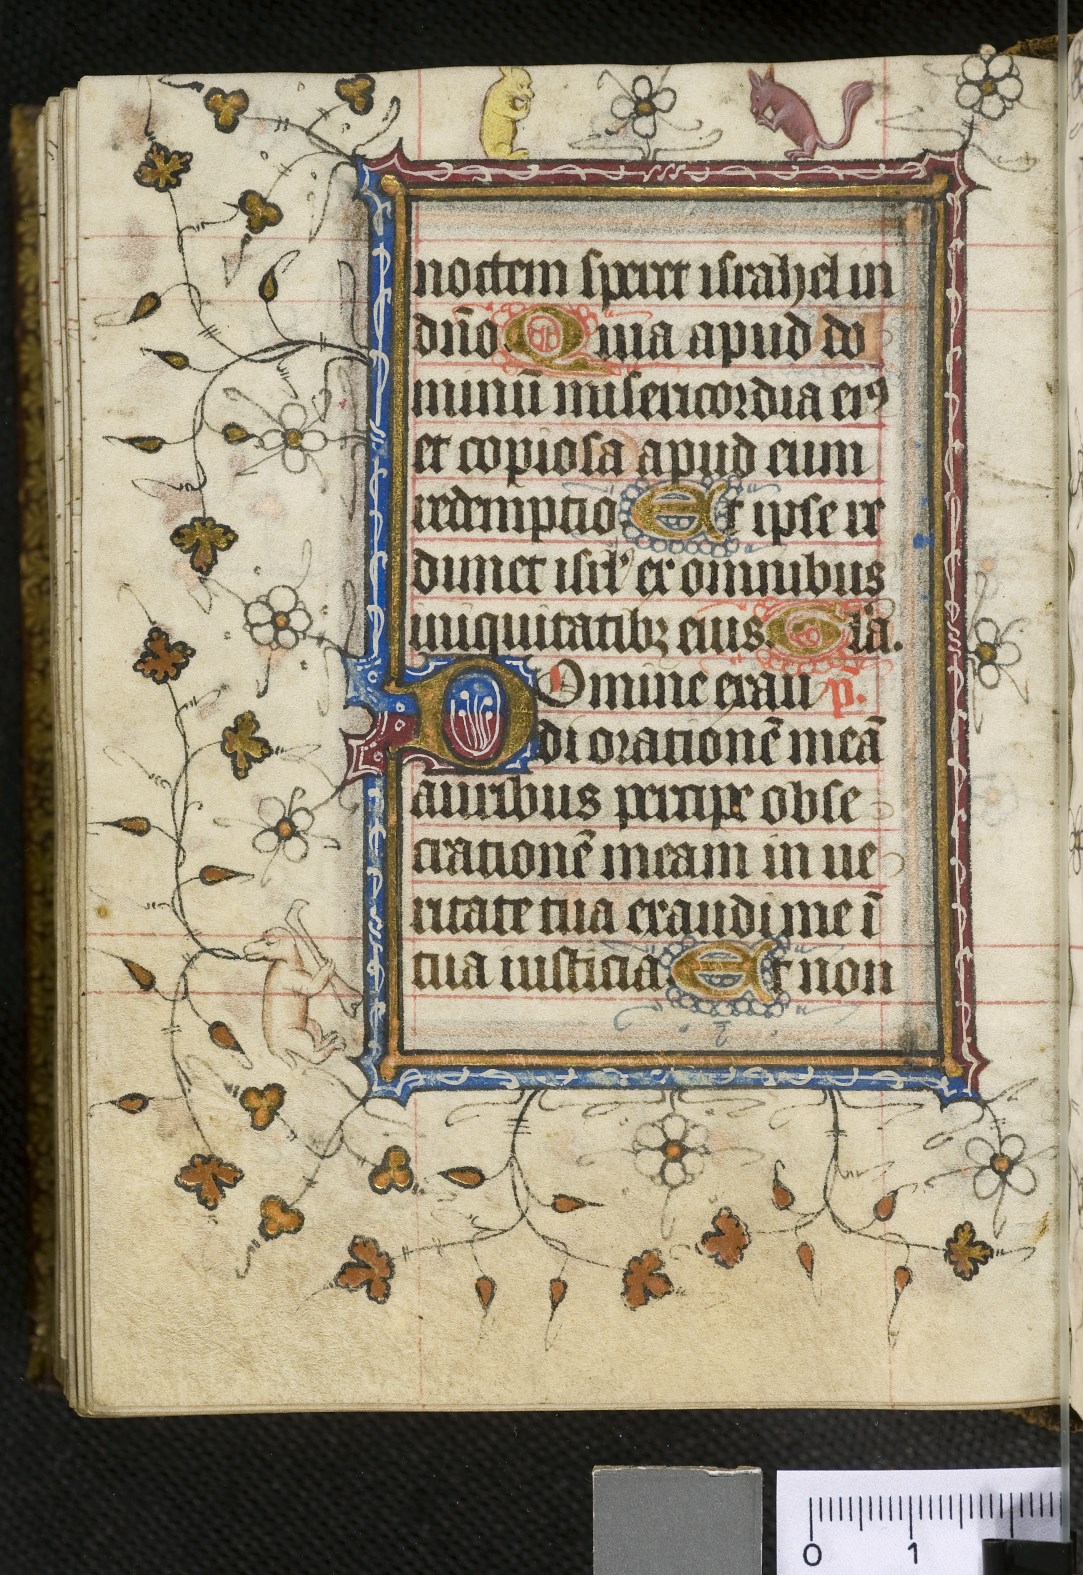 noctem speret israhel in
dn̄o Quia apud do
minū misericordia eiꝰ
et copiosa apud eum
redemptio Et ipse re
dimet isrl̕ ex omnibus
iniquitatibꝫ eius Gl̄a.
DOmine exau p.
di orationē meā
auribus percipe obse
crationē meam in ue
ritate tua exaudi me ī
tua iusticia Et non
0 1